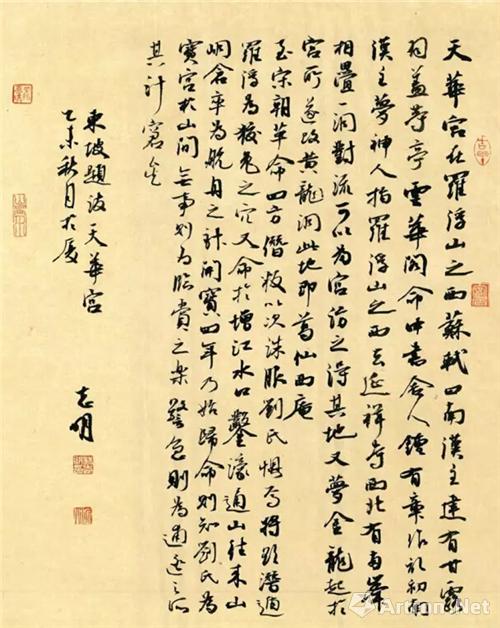 天華宮在羅浮山之西蘇軾曰南漢主建有甘露
羽蓋等亭雲華閣命中書舍人鍾有章作記初南
漢主夢神人指羅浮山之西去延祥寺西北有兩峯
相疊一洞對流可以為宮訪之得其地又夢金龍起於
宮所遂改黃龍洞此地即葛仙西庵
至宋朝革命四方僭叛以次誅服劉氏懼焉將欲潛遁
羅浮為狡兔之穴又命於增江水口鑿濠通山往來山
峒倉卒為航舟之計開寶四年乃始歸命則知劉氏為
寶宮於山間無事則為臨賞之樂警急則為遁逃之所
其計窘矣
東坡題跋天華宮
乙未秋月於廈
志明
Artron.Net